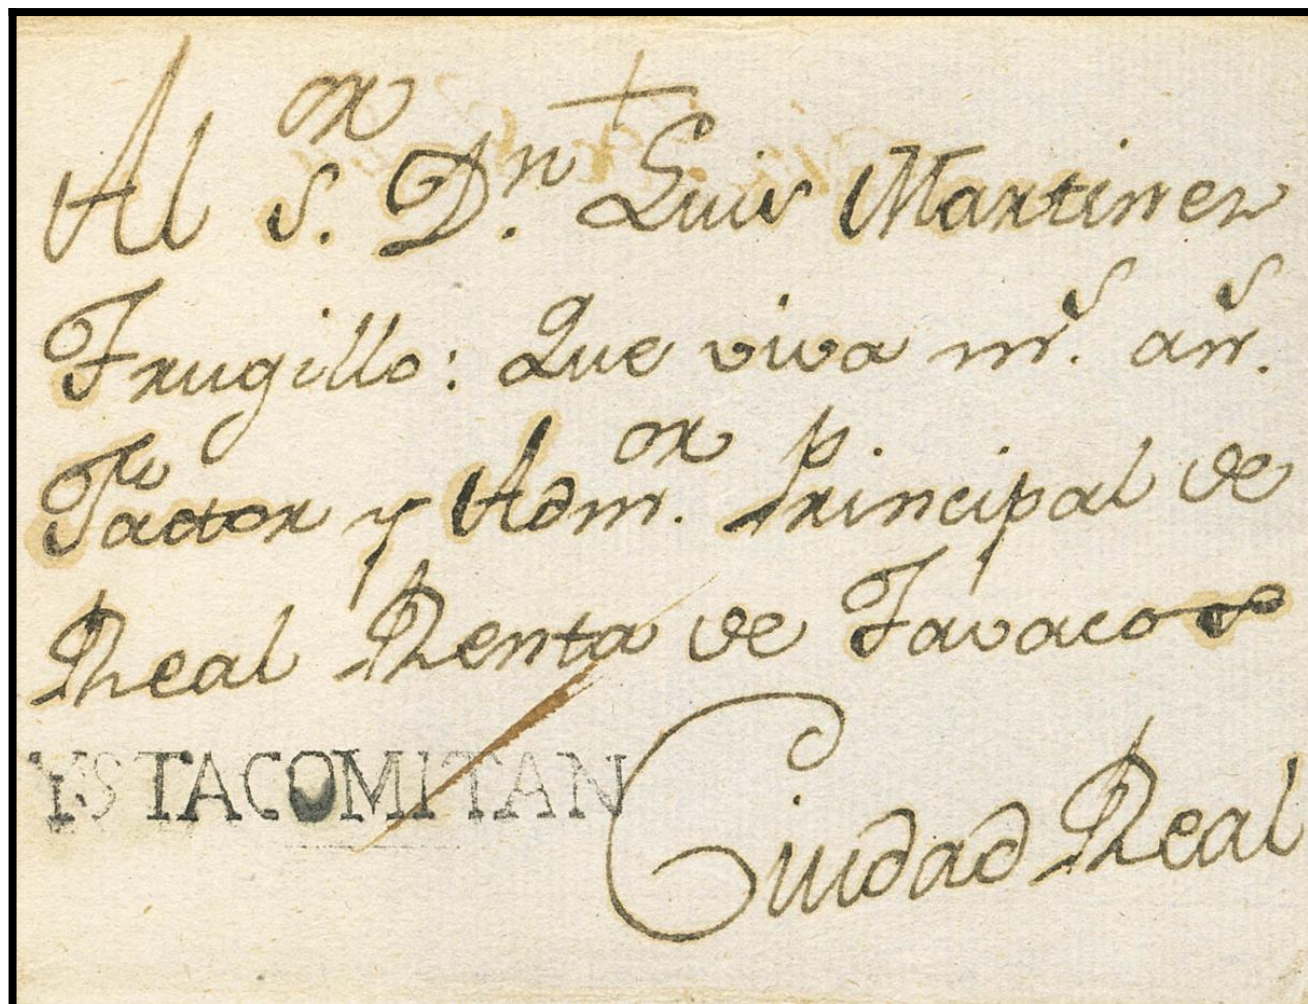 Al S.or D.n Luis Martinez
Trugillo: Que viva m.s an.s
Factor y Adm.or Principal de
Real Renta de Tavacos
YSTACOMITAN
Ciudad Real